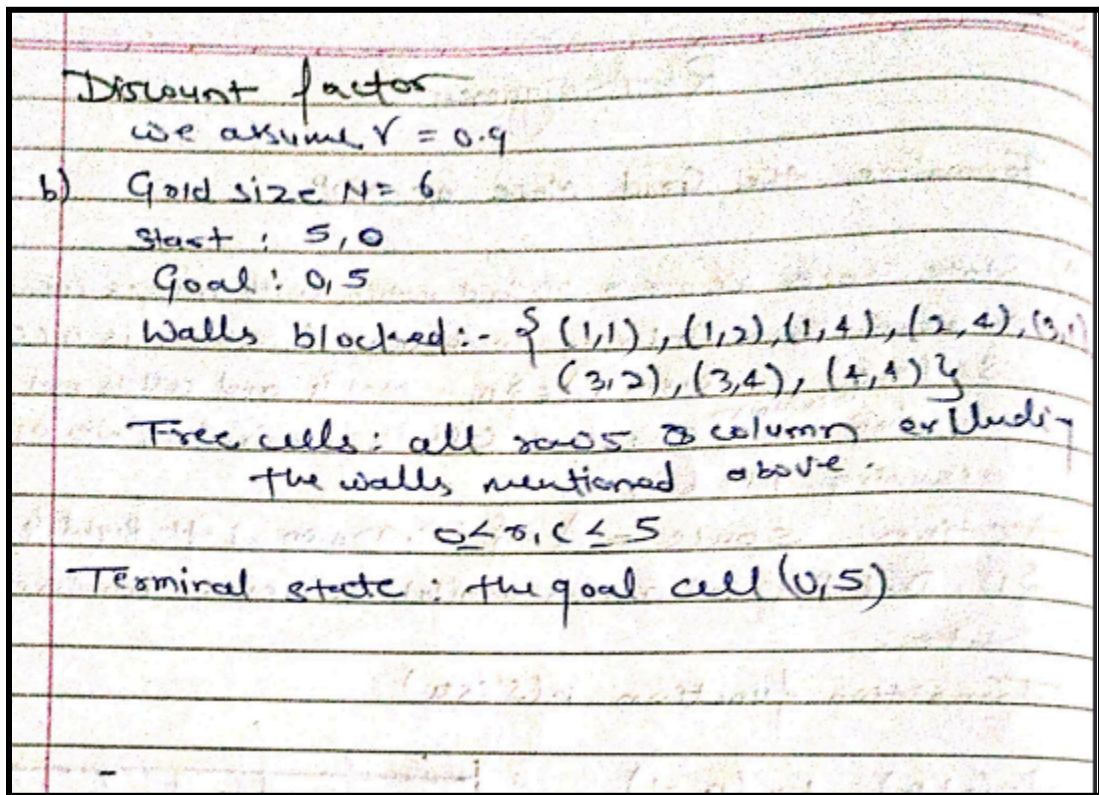 Discount factor
we assume γ = 0.9
b) Grid size N = 6
Start : 5,0
Goal : 0,5
Walls blocked:- { (1,1), (1,2), (1,4), (2,4), (3,1)
(3,2), (3,4), (4,4) }
Free cells: all rows & column excluding
the walls mentioned above.
0 ≤ r, c ≤ 5
Terminal state : the goal cell (0,5)